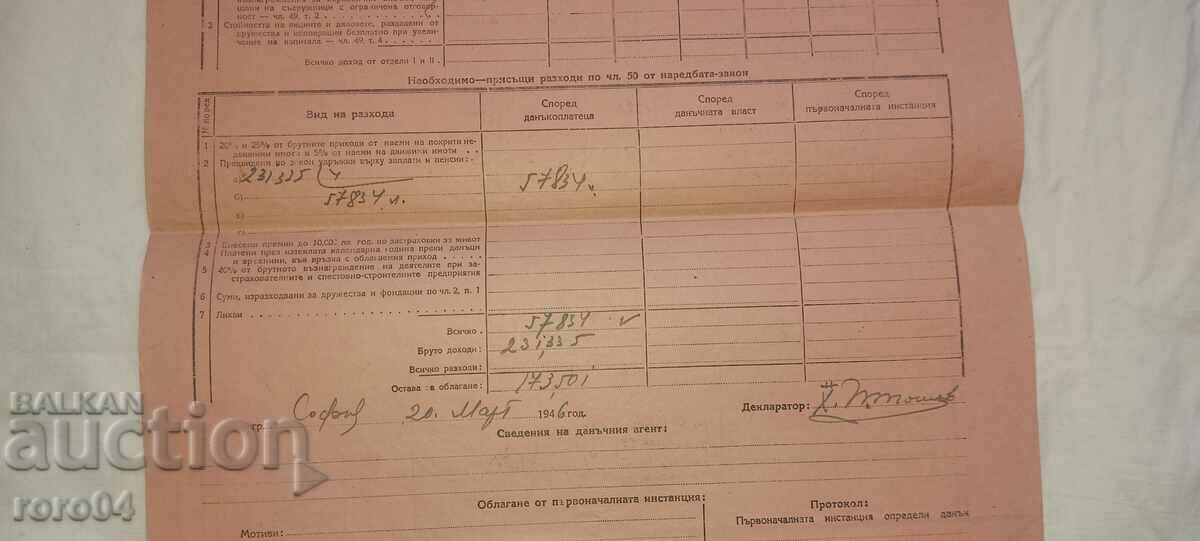 щани на съвружници с ограничена отговор-
ност — чл. 49, т. 2
2 Стойността на акциите и дяловете, раздадени от
дружества и кооперации безплатно при увели-
чение на капитала — чл. 49, т. 4
Всичко доход от отдели I и II.
Необходимо—присъщи разходи по чл. 50 от наредбата-закон
№ поред
Вид на разхода
Според данъкоплатеца
Според данъчната власт
Според първоначалната инстанция
1 20% и 25% от брутните приходи от наеми на покрити не-
движими имоти и 5% от наеми на движими имоти . .
2 Предвидени по закон удръжки върху заплати и пенсии:
а) 231335 ( 4
57834 л.
б) 57834 л.
в)
г)
3 Внесени премии до 10,000 лв. год. по застраховки за живот
4 Платени през изтеклата календарна година преки данъци
и връзнини, във връзка с облагаемия приход
5 40% от брутното възнаграждение на деятелите при за-
страхователните и спестовно-строителните предприятия
6 Суми, изразходвани за дружества и фондации по чл. 2, п. 1
7 Лихви
Всичко . 57834 ✓
Бруто доходи: 231,335
Всичко разходи:
Остава за облагане: 173,501
гр. София 20. Март 1946 год.
Декларатор:
Сведения на данъчния агент:
Облагане от първоначалната инстанция:
Протокол:
Мотиви:
Първоначалната инстанция определи данък
БАЛКАН
auction
roro04